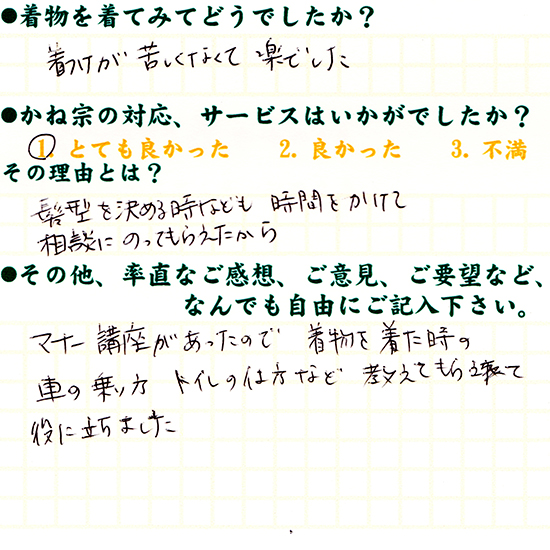 ●着物を着てみてどうでしたか?
着つけが苦しくなくて楽でした
●かね宗の対応、サービスはいかがでしたか?
1. とても良かった 2. 良かった 3. 不満
その理由とは?
髪型を決める時なども 時間をかけて
相談にのってもらえたから
●その他、率直なご感想、ご意見、ご要望など、
なんでも自由にご記入下さい。
マナー講座があったので 着物を着た時の
車の乗り方 トイレの仕方など 教えてもらえて
役に立ちました